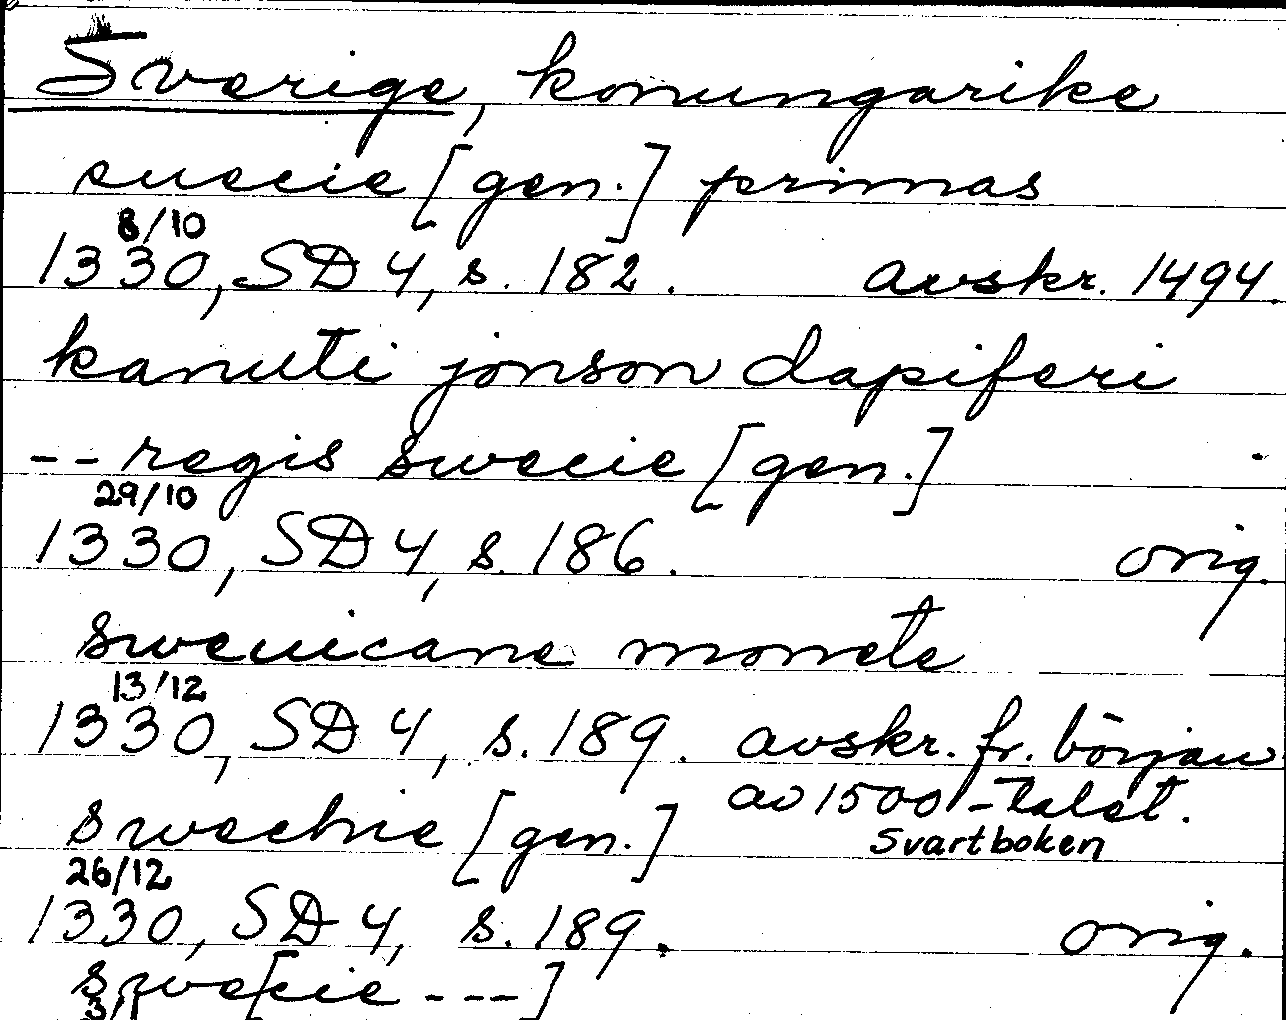 Sverige, konungarike
suecie [gen.] primas
8/10
1330, SD 4, s. 182. avskr. 1494.
kanuti jonson dapiferi
-- regis swecie [gen.]
29/10
1330, SD 4, s. 186. orig.
swenicane monete
13/12
1330, SD 4, s. 189. avskr. fr. början
av 1500-talet.
Svartboken
swechie [gen.]
26/12
1330, SD 4, s. 189. orig.
swe[cie ---]
3/1